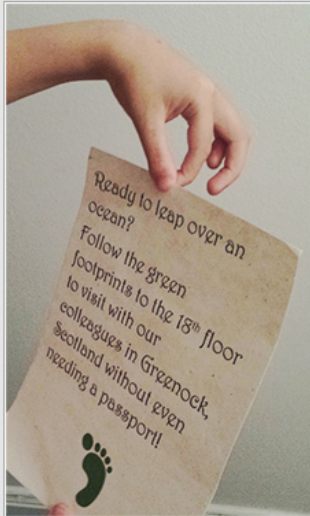 Ready to leap over an
ocean?
Follow the green
footprints to the 18th floor
to visit with our
colleagues in Greenock,
Scotland without even
needing a passport!